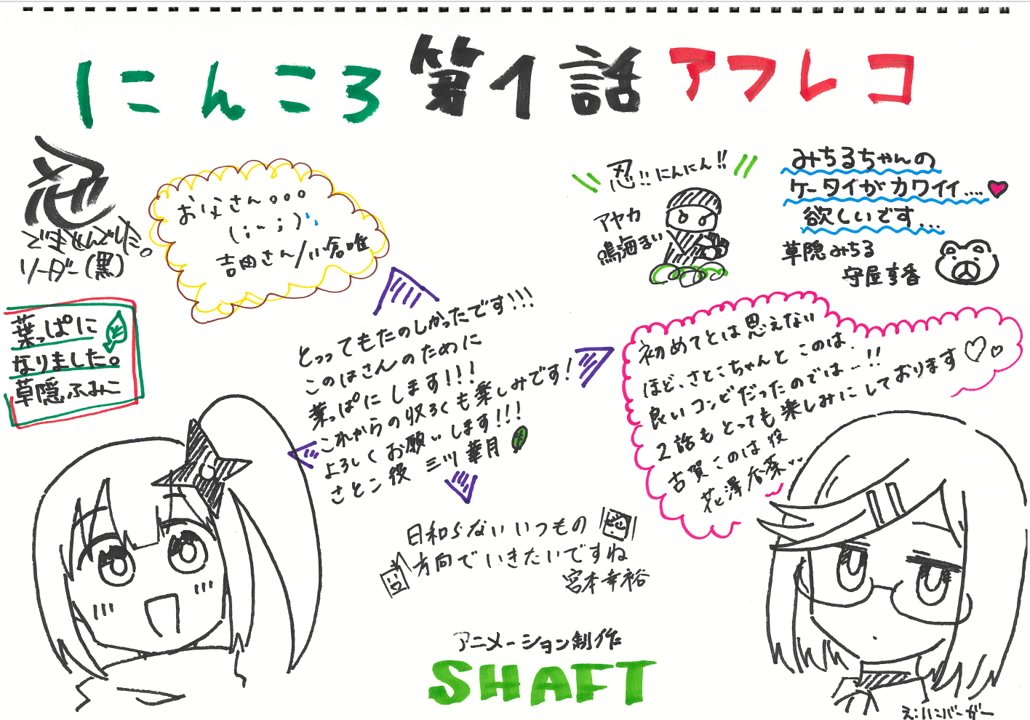 にんころ 第1話 アフレコ
忍
でませんでした。
リーダー(黒)
お父さん。。。
(;~;)
吉田さん/小倉唯
忍!!にんにん!!
アヤカ
鳴海まい
みちるちゃんの
ケータイがカワイイ....
欲しいです...
草隠みちる
守屋亨香
葉っぱに
なりました。
草隠ふみこ
とってもたのしかったです!!!
このはさんのために
葉っぱにします!!!
これからの収ろくも楽しみです!
よろしくお願いします!!!
さとこ役 三川華月
初めてとは思えない
ほど、さとこちゃんとこのは、
良いコンビだったのでは…!!
2話もとっても楽しみにしております♡
古賀このは役
花澤香菜
日和らないいつもの
方向でいきたいですね
宮本幸裕
アニメーション制作
SHAFT
え:ハンバーガー